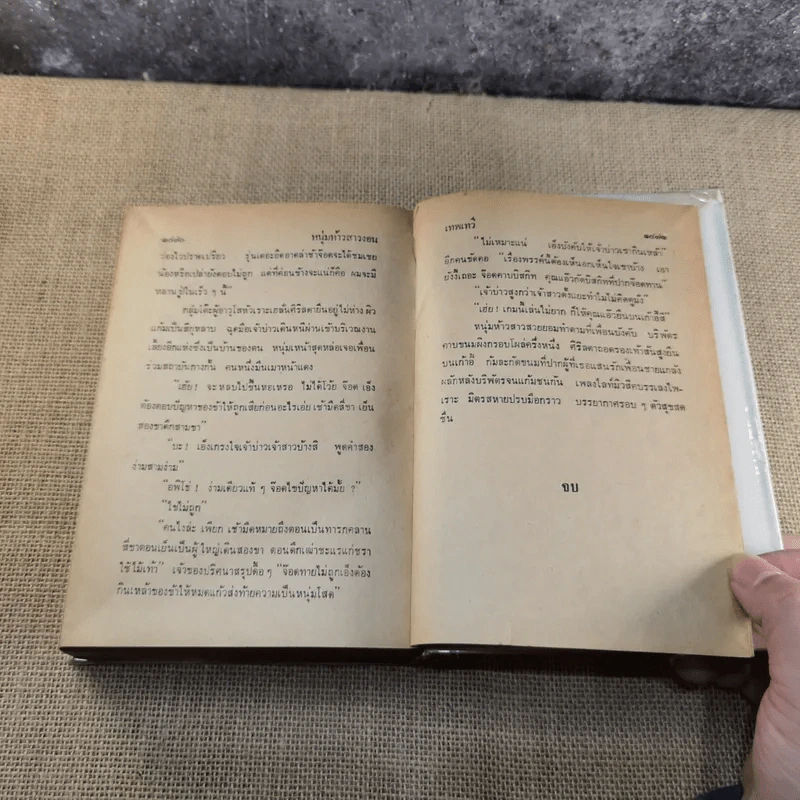 หนุ่มห้าวสาวงอน
น้องหรือเปล่ายังตอบไม่ถูก แต่ที่ค่อนข้างจะแน่ก็คือ ผมจะมี
หลานปู่ในเร็ว ๆ นี้"
กลุ่มโต๊ะผู้อาวุโสหัวเราะเฮลั่นคิรีลดายืนอยู่ไม่ห่าง ผิว
แก้มเป็นสีกุหลาบ ฉุดมือเจ้าบ่าวเดินหนีผ่านเข้าบริเวณงาน
เลี้ยงอีกแห่งซึ่งเป็นบ้านของตน หนุ่มเหน้าสุดหล่อเจอเพื่อน
ร่วมสถาบันกางกั้น คนหนึ่งมึนเมาหน้าแดง
"เฮ้ย! จะหลบไปขึ้นหอเหรอ ไม่ได้โว้ย จ๊อด เอ็ง
ต้องตอบปัญหาของข้าให้ถูกเสียก่อนอะไรเอ่ย เช้ามืดสี่ขา เย็น
สองขาดึกสามขา"
"บะ! เอ็งเกรงใจเจ้าบ่าวเจ้าสาวบ้างสิ พูดคำสอง
ง่ามสามง่าม"
"อพิโธ่! ง่ามเดียวแท้ ๆ จ๊อดไขปัญหาได้มั้ย ?"
"ไขไม่ถูก"
"คนไงล่ะ เพื่อก เช้ามืดหมายถึงตอนเป็นทารกคลาน
สี่ขาตอนเย็นเป็นผู้ใหญ่เดินสองขา ตอนดึกเฒ่าชะแรแก่ชรา
ใช้ไม้เท้า" เจ้าของปริศนาสรุปดื้อ ๆ "จ๊อดทายไม่ถูกเอ็งต้อง
กินเหล้าของข้าให้หมดแก้วส่งท้ายความเป็นหนุ่มโสด"
เทพเทวี
"ไม่เหมาะแน่ เอ็งบังคับให้เจ้าบ่าวเขากินเหล้า"
อีกคนขัดคอ "เรื่องพรรค์นี้ต้องเห็นอกเห็นใจเขาบ้าง เอา
ยังงี้เถอะ จ๊อดคาบบิสกิท คุณแอ๊วกัดบิสกิทที่ปากจ๊อดทาน"
"เจ้าบ่าวสูงกว่าเจ้าสาวตั้งแยะทำไมไม่คิดดูมั่ง"
"เฮ่ย! เกมนี้เล่นไม่ยาก ก็ให้คุณแอ๊วยืนบนเก้าอี้สิ"
หนุ่มห้าวสาวสวยยอมทำตามที่เพื่อนบังคับ บริพัตร
คาบขนมผิงกรอบโผล่ครึ่งหนึ่ง คิรีลดาถอดรองเท้าส้นสูงยืน
บนเก้าอี้ ก้มละกัดขนมที่ปากผู้ที่เธอแสนรักเพื่อนชายแกล้ง
ผลักหลังบริพัตรจนแก้มชนกัน เพลงไลท์มิวสิคบรรเลงไพ-
เราะ มิตรสหายปรบมือกราว บรรยากาศรอบ ๆ ตัวสุขสด
ชื่น
จบ